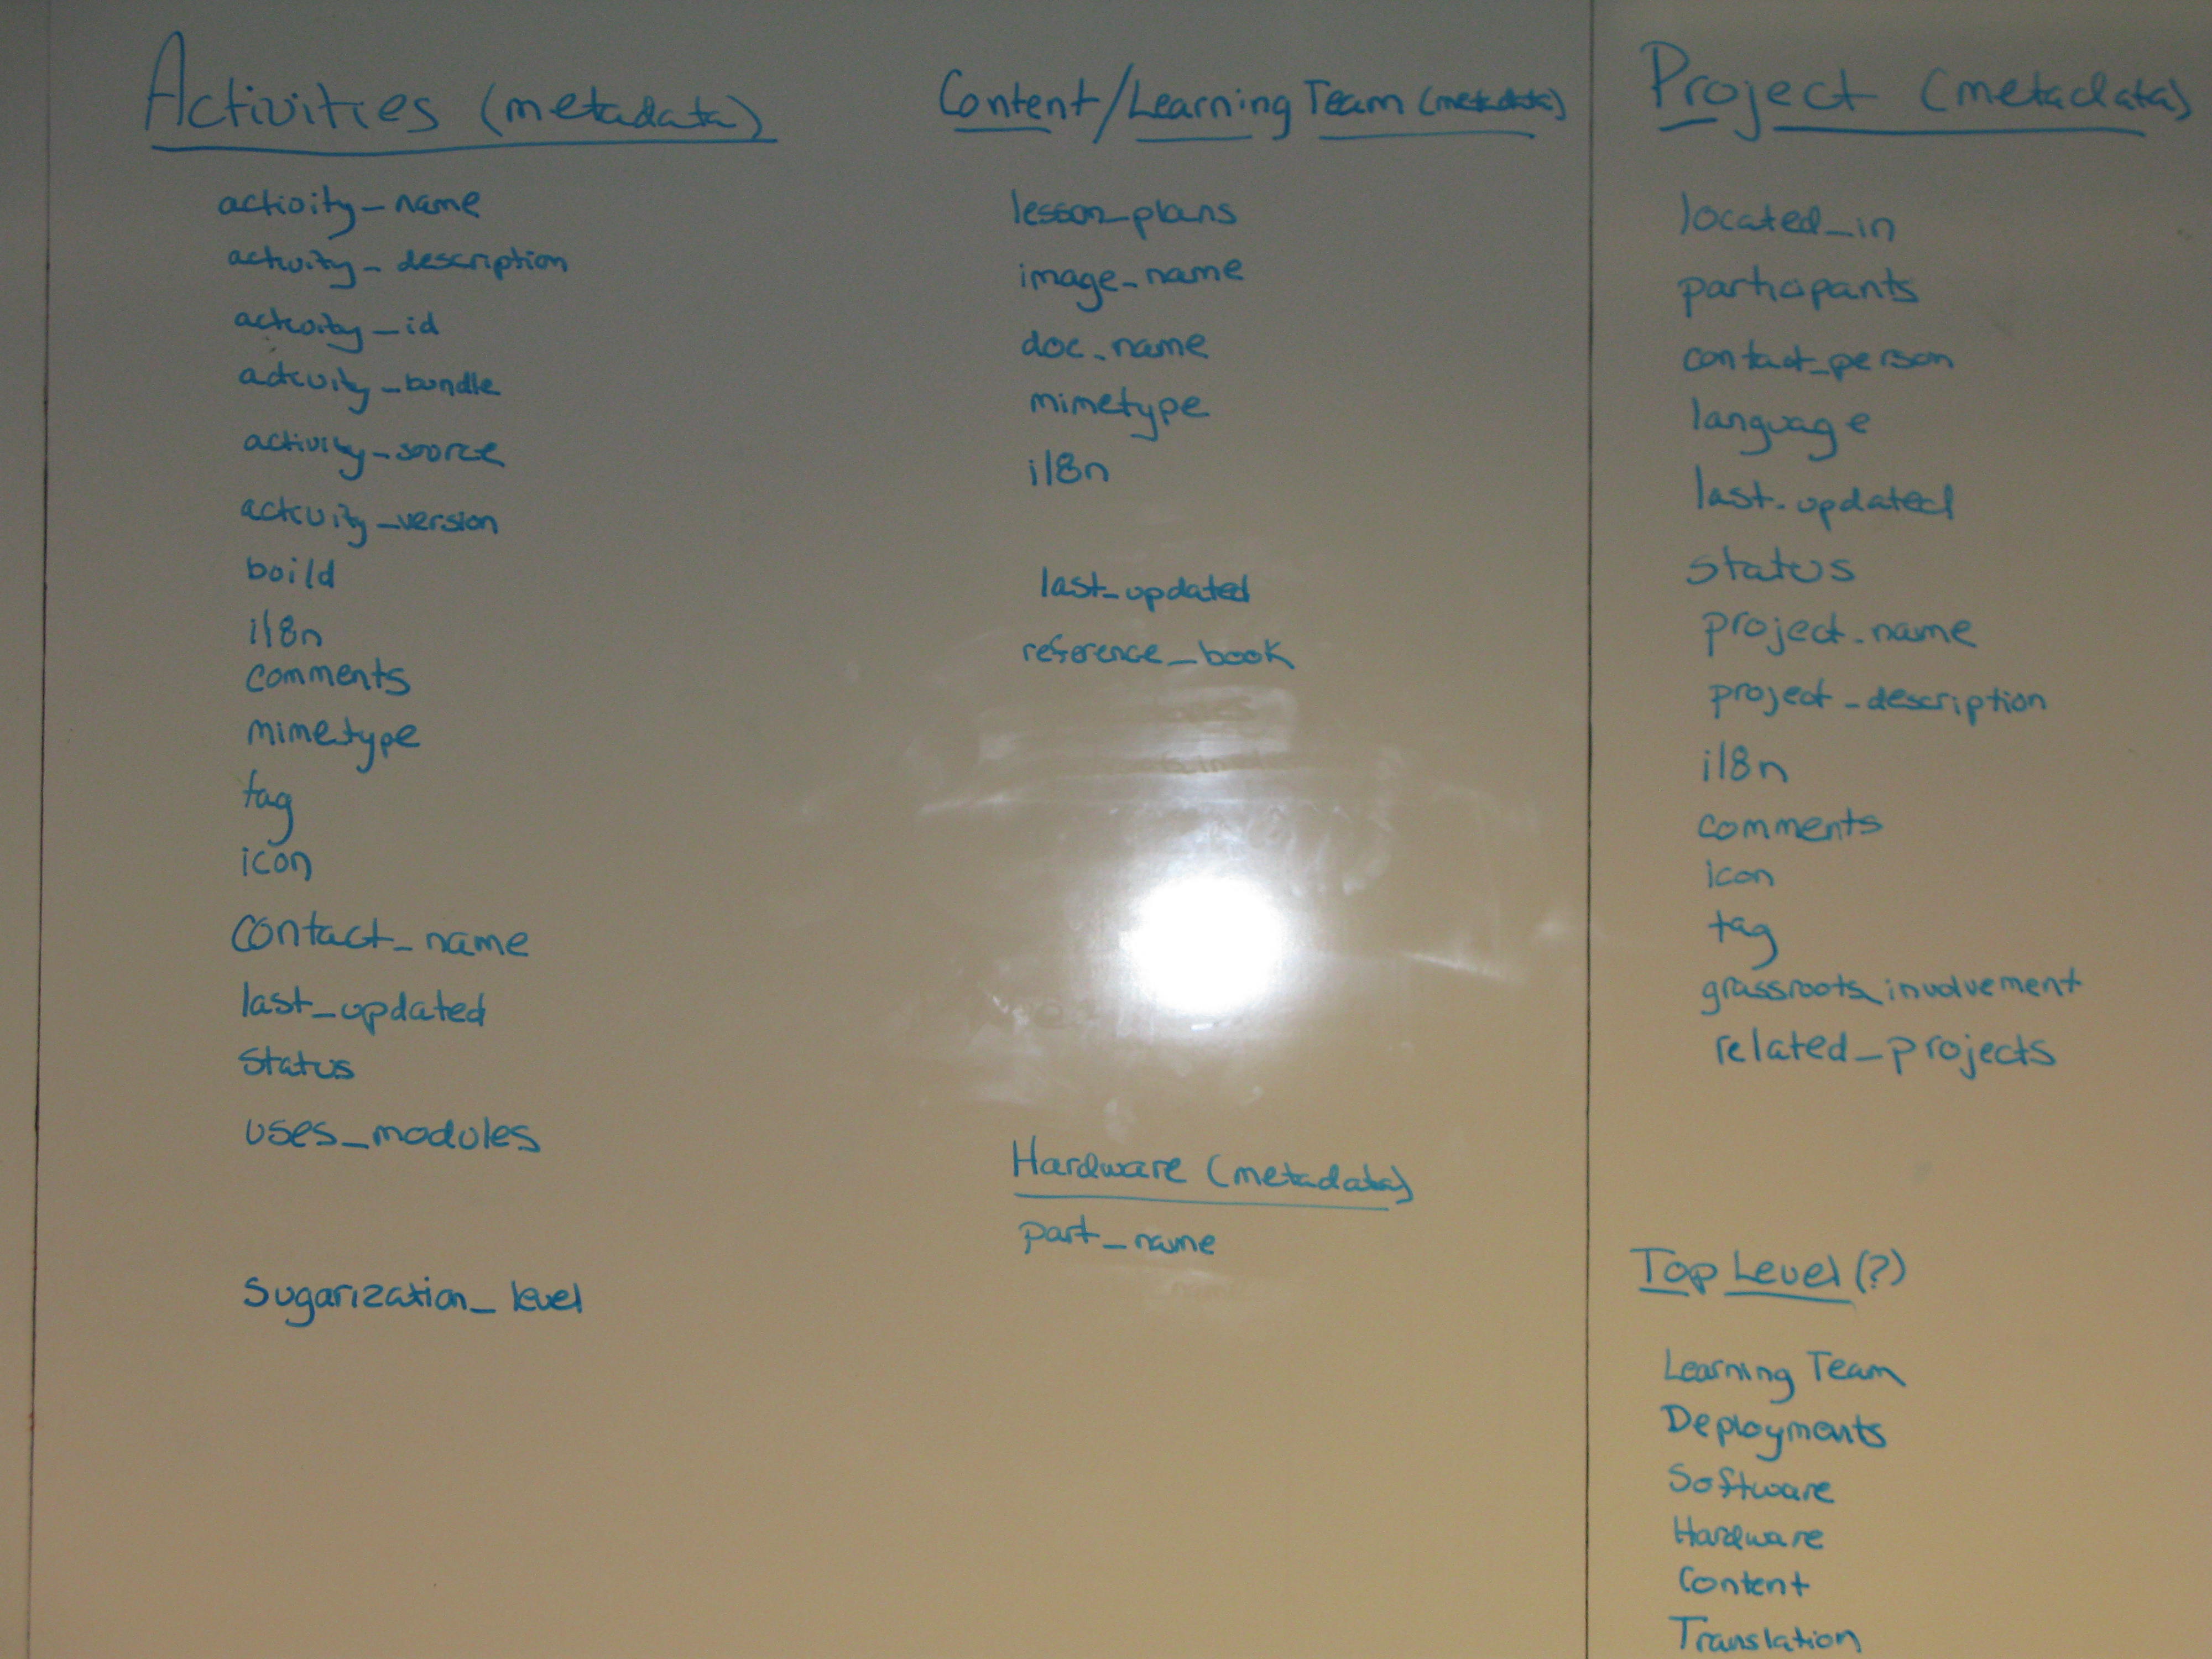 Activities (metadata)
activity_name
activity_description
activity_id
activity_bundle
activity_source
activity_version
build
i18n
comments
mimetype
tag
icon
contact_name
last_updated
status
uses_modules
sugarization_level
Content/Learning Team (metadata)
lesson_plans
image_name
doc_name
mimetype
i18n
last_updated
reference_book
Hardware (metadata)
part_name
Project (metadata)
located_in
participants
contact_person
language
last_updated
status
project_name
project_description
i18n
comments
icon
tag
grassroots_involvement
related_projects
Top Level (?)
Learning Team
Deployments
Software
Hardware
Content
Translation